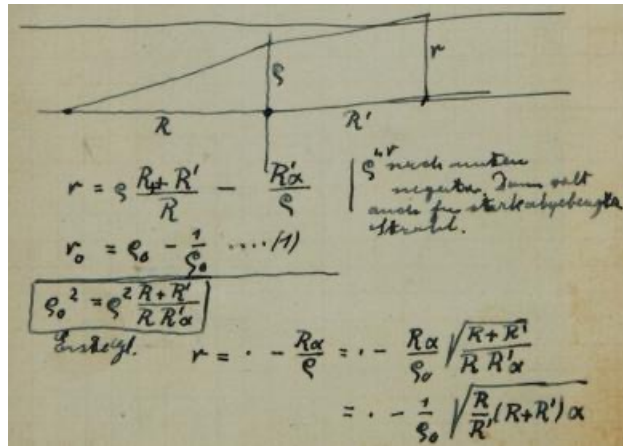 ρ r
R R'
r = ρ (R + R')/R − R'α/ρ
ρ u r nach unten
negativ. Dann gilt
auch für stark abgebeugten
Strahl.
r₀ = ρ₀ − 1/ρ₀ .... (1)
ρ₀² = ρ² (R + R')/(R R'α)
r = · − Rα/ρ = · − Rα/ρ₀ √((R + R')/(R R'α))
= · − 1/ρ₀ √(R/R' (R + R') α)